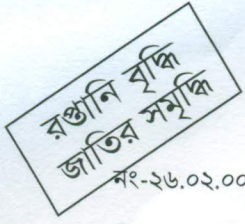 রপ্তানি বৃদ্ধি
জাতির সমৃদ্ধি
নং-২৬.০২.০০